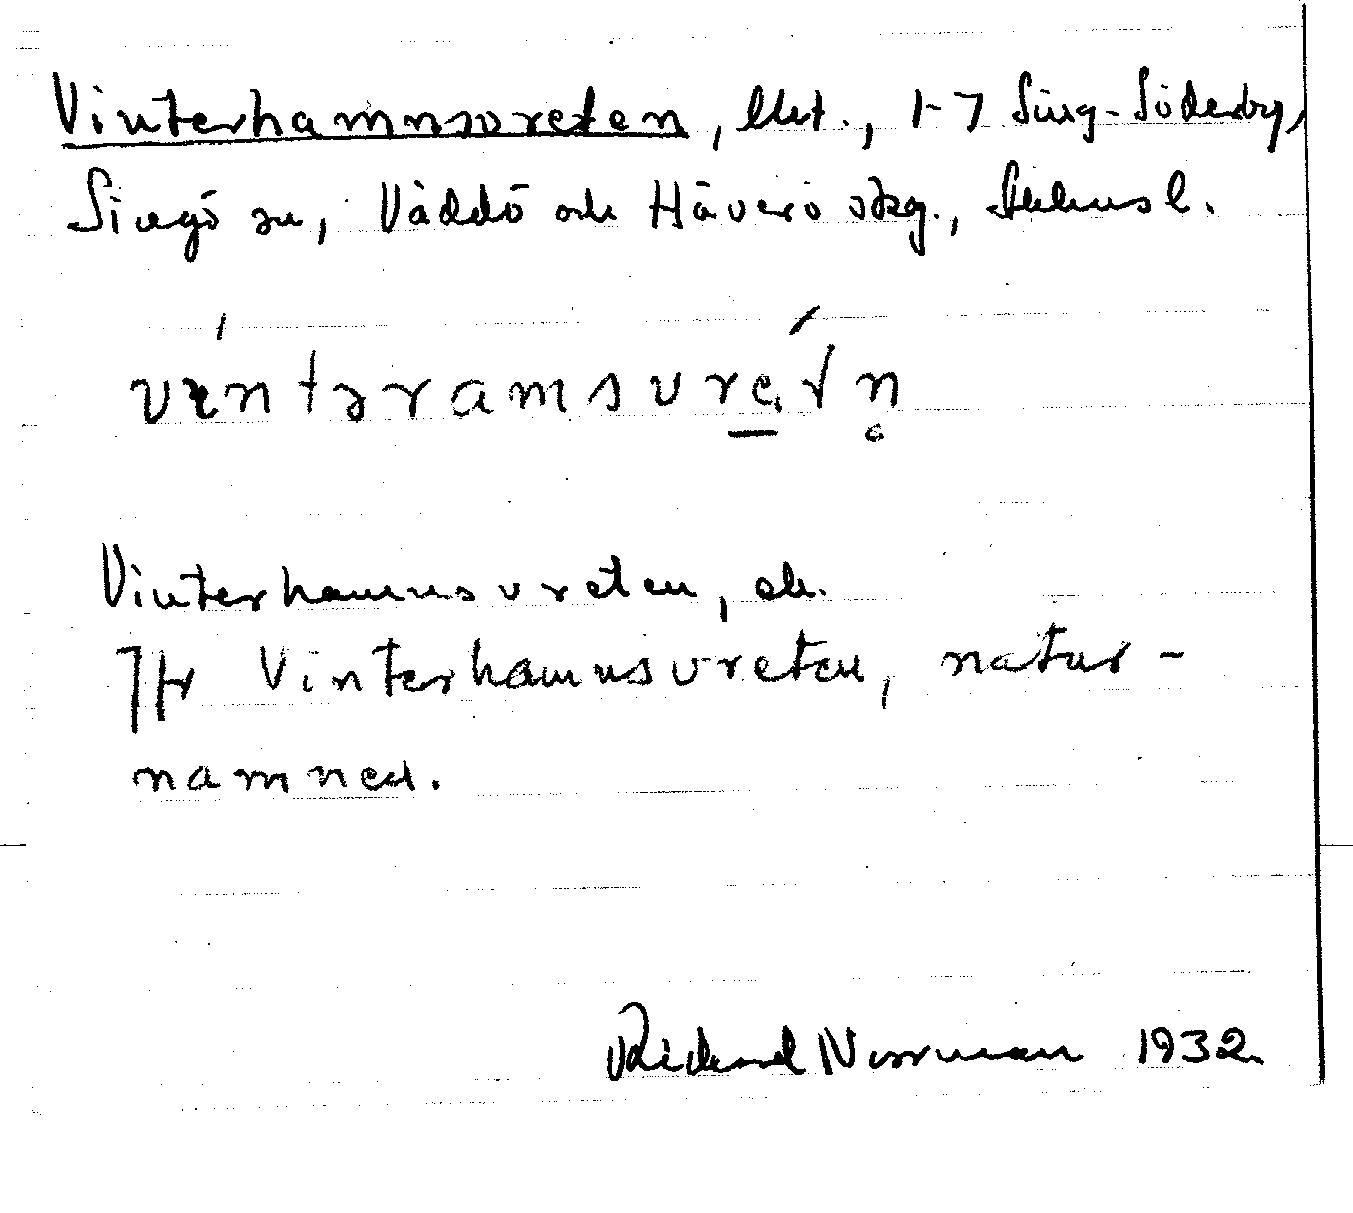 Vinterhamnsvreten, Uut., 1-7 Sing-Söderby,
Singö sn, Väddö och Häverö skg., Sthms l.
vintəramsvretn̥
Vinterhamnsvreten, ek.
Jfr Vinterhamnsvreten, natur-
namnen.
Rickard Norrman 1932